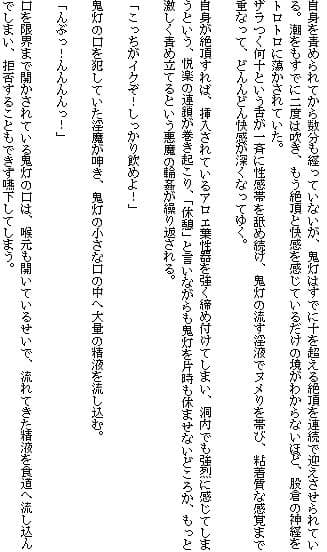 自身を責められてから数分も経っていないが、鬼灯はすでに十を超える絶頂を連続で迎えさせられてい
る。潮をもすでに二度は吹き、もう絶頂と快感を感じているだけの境がわからないほど、股倉の神経を
トロトロに蕩かされていた。
ザラつく何十という舌が一斉に性感帯を舐め続け、鬼灯の流す淫液でヌメりを帯び、粘着質な感覚まで
重なって、どんどん快感が深くなってゆく。
自身が絶頂すれば、挿入されているアロエ葉性器を強く締め付けてしまい、洞内でも強烈に感じてしま
うという、悦楽の連鎖が巻き起こり、「休憩」と言いながらも鬼灯を片時も休ませないどころか、もっと
激しく責め立てるという悪魔の輪姦が繰り返される。
「こっちがイクぞ！しっかり飲めよ！」
鬼灯の口を犯していた淫魔が呻き、鬼灯の小さな口の中へ大量の精液を流し込む。
「んぶっ！んんんんっ！」
口を限界まで開かされている鬼灯の口は、喉元も開いているせいで、流れてきた精液を食道へ流し込ん
でしまい、拒否することもできず嚥下してしまう。